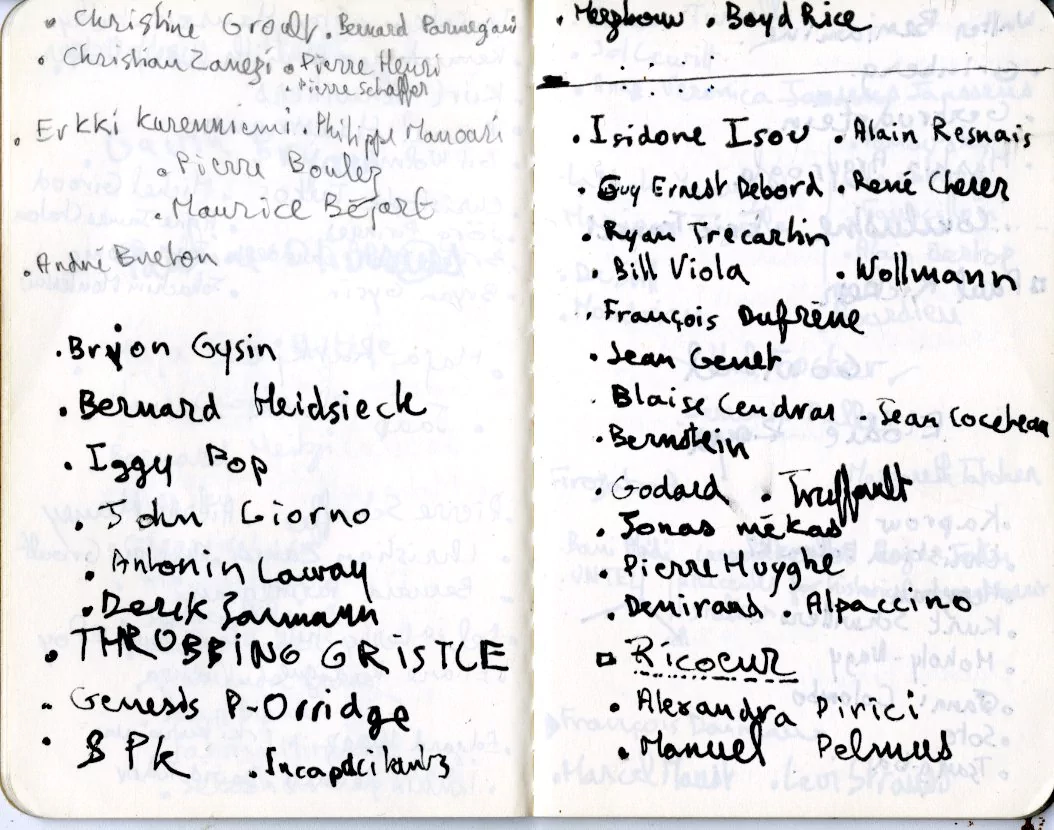 · Christine Groult · Bernard Parmegiani
· Christian Zanezi · Pierre Henri
· Pierre Schaffer
· Erkki Kurenniemi · Philippe Manouri
· Pierre Boulez
· Maurice Béjart
· André Breton
· Brion Gysin
· Bernard Heidsieck
· Iggy Pop
· John Giorno
· Antonin
· Derek Jarmann
· THROBBING GRISTLE
· Genesis P-Orridge
· SPK · Incapacitants
· Merzbow · Boyd Rice
· Isidone Isou · Alain Resnais
· Guy Ernest Debord · René Cherer
· Ryan Trecartin
· Bill Viola · Wollmann
· François Dufrêne
· Jean Genet
Blaise Cendrar · Jean Cocteau
· Bernstein
· Godard · Truffault
· Jonas mékas
· Pierre Huyghe
· Denirand · Alpaccino
Ricoeur
· Alexandra Pirici
· Manuel Pelmus